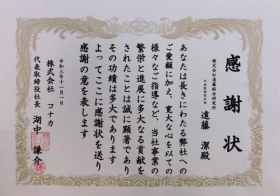 感謝状
株式会社遠藤総合研究所
遠藤 潔殿
あなたは長きにわたる弊社への
ご愛顧に加え、寛大な心を以ての
様々なご指導など、当社事業の
繁栄と進展に多大なる貢献を
されたことは誠に顕著であり
その功績は多大であります
よってここに感謝状を送り
感謝の意を表します
令和三年十一月一日
株式会社 コナカ
代表取締役社長 湖中 謙介